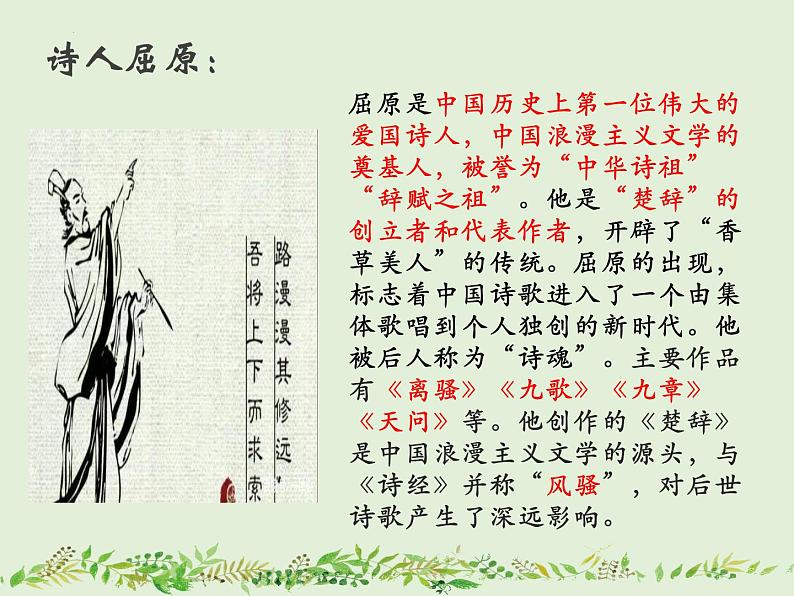 诗人屈原：
路漫漫其修远
吾将上下而求索
屈原是中国历史上第一位伟大的
爱国诗人，中国浪漫主义文学的
奠基人，被誉为“中华诗祖”
“辞赋之祖”。他是“楚辞”的
创立者和代表作者，开辟了“香
草美人”的传统。屈原的出现，
标志着中国诗歌进入了一个由集
体歌唱到个人独创的新时代。他
被后人称为“诗魂”。主要作品
有《离骚》《九歌》《九章》
《天问》等。他创作的《楚辞》
是中国浪漫主义文学的源头，与
《诗经》并称“风骚”，对后世
诗歌产生了深远影响。